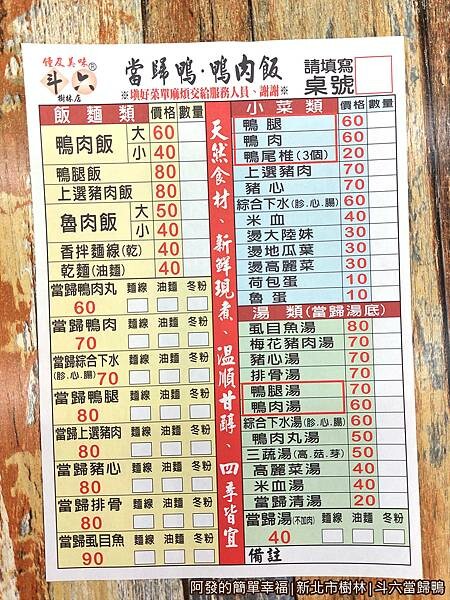 鍾友美味
斗六®
樹林店
當歸鴨·鴨肉飯
※填好菜單麻煩交給服務人員、謝謝※
請填寫
桌號
飯麵類 價格 數量
鴨肉飯 大 60
小 40
鴨腿飯 80
上選豬肉飯 80
魯肉飯 大 50
小 40
香拌麵線(乾) 40
乾麵(油麵) 40
當歸鴨肉丸 麵線 油麵 冬粉
60
當歸鴨肉 麵線 油麵 冬粉
70
當歸綜合下水 麵線 油麵 冬粉
(胗.心.腸) 70
當歸鴨腿 麵線 油麵 冬粉
80
當歸上選豬肉 麵線 油麵 冬粉
80
當歸豬心 麵線 油麵 冬粉
80
當歸排骨 麵線 油麵 冬粉
80
當歸虱目魚 麵線 油麵 冬粉
90
天然食材、新鮮現煮、溫順甘醇、四季皆宜
小菜類 價格 數量
鴨腿 60
鴨肉 60
鴨尾椎(3個) 20
上選豬肉 70
豬心 70
綜合下水(胗.心.腸) 60
米血 40
燙大陸妹 30
燙地瓜葉 30
燙高麗菜 30
荷包蛋 10
魯蛋 10
湯類(當歸湯底)
虱目魚湯 80
梅花豬肉湯 70
豬心湯 70
排骨湯 70
鴨腿湯 70
鴨肉湯 60
綜合下水湯(胗.心.腸) 60
鴨肉丸湯 50
三蔬湯(高.菇.芽) 50
高麗菜湯 40
米血湯 40
當歸清湯 20
當歸湯(不加肉) 麵線 油麵 冬粉
40
備註
阿發的簡單幸福|新北市樹林|斗六當歸鴨